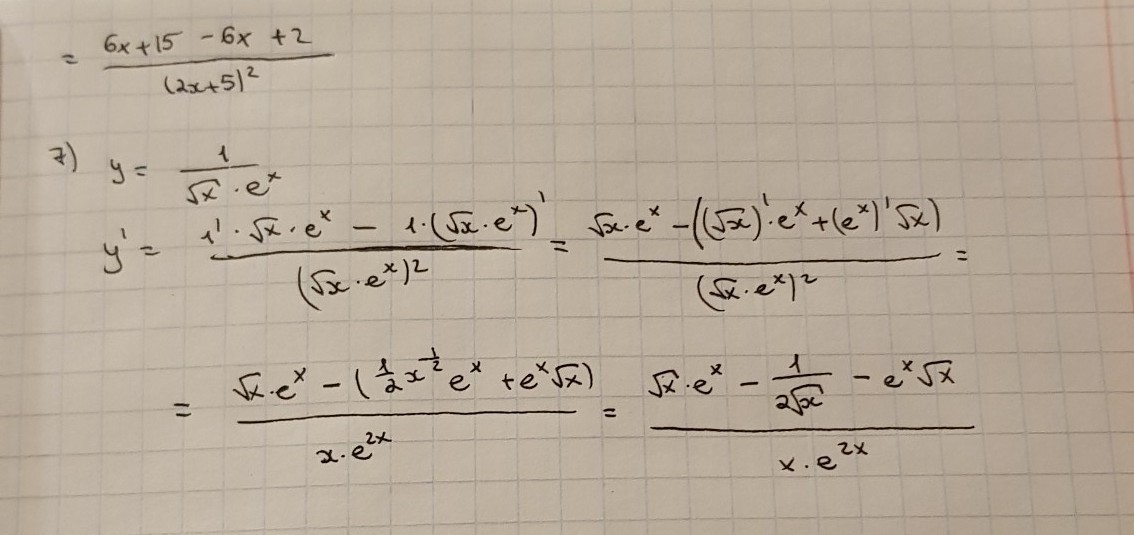 = (6x+15 -6x +2)/(2x+5)²
7) y = 1/(√x · eˣ)
y' = (1' · √x · eˣ - 1 · (√x · eˣ)')/(√x · eˣ)² = (√x · eˣ - ((√x)' · eˣ + (eˣ)' √x))/(√x · eˣ)² =
= (√x · eˣ - (1/2 x^(-1/2) eˣ + eˣ √x))/(x · e^(2x)) = (√x · eˣ - 1/(2√x) - eˣ √x)/(x · e^(2x))